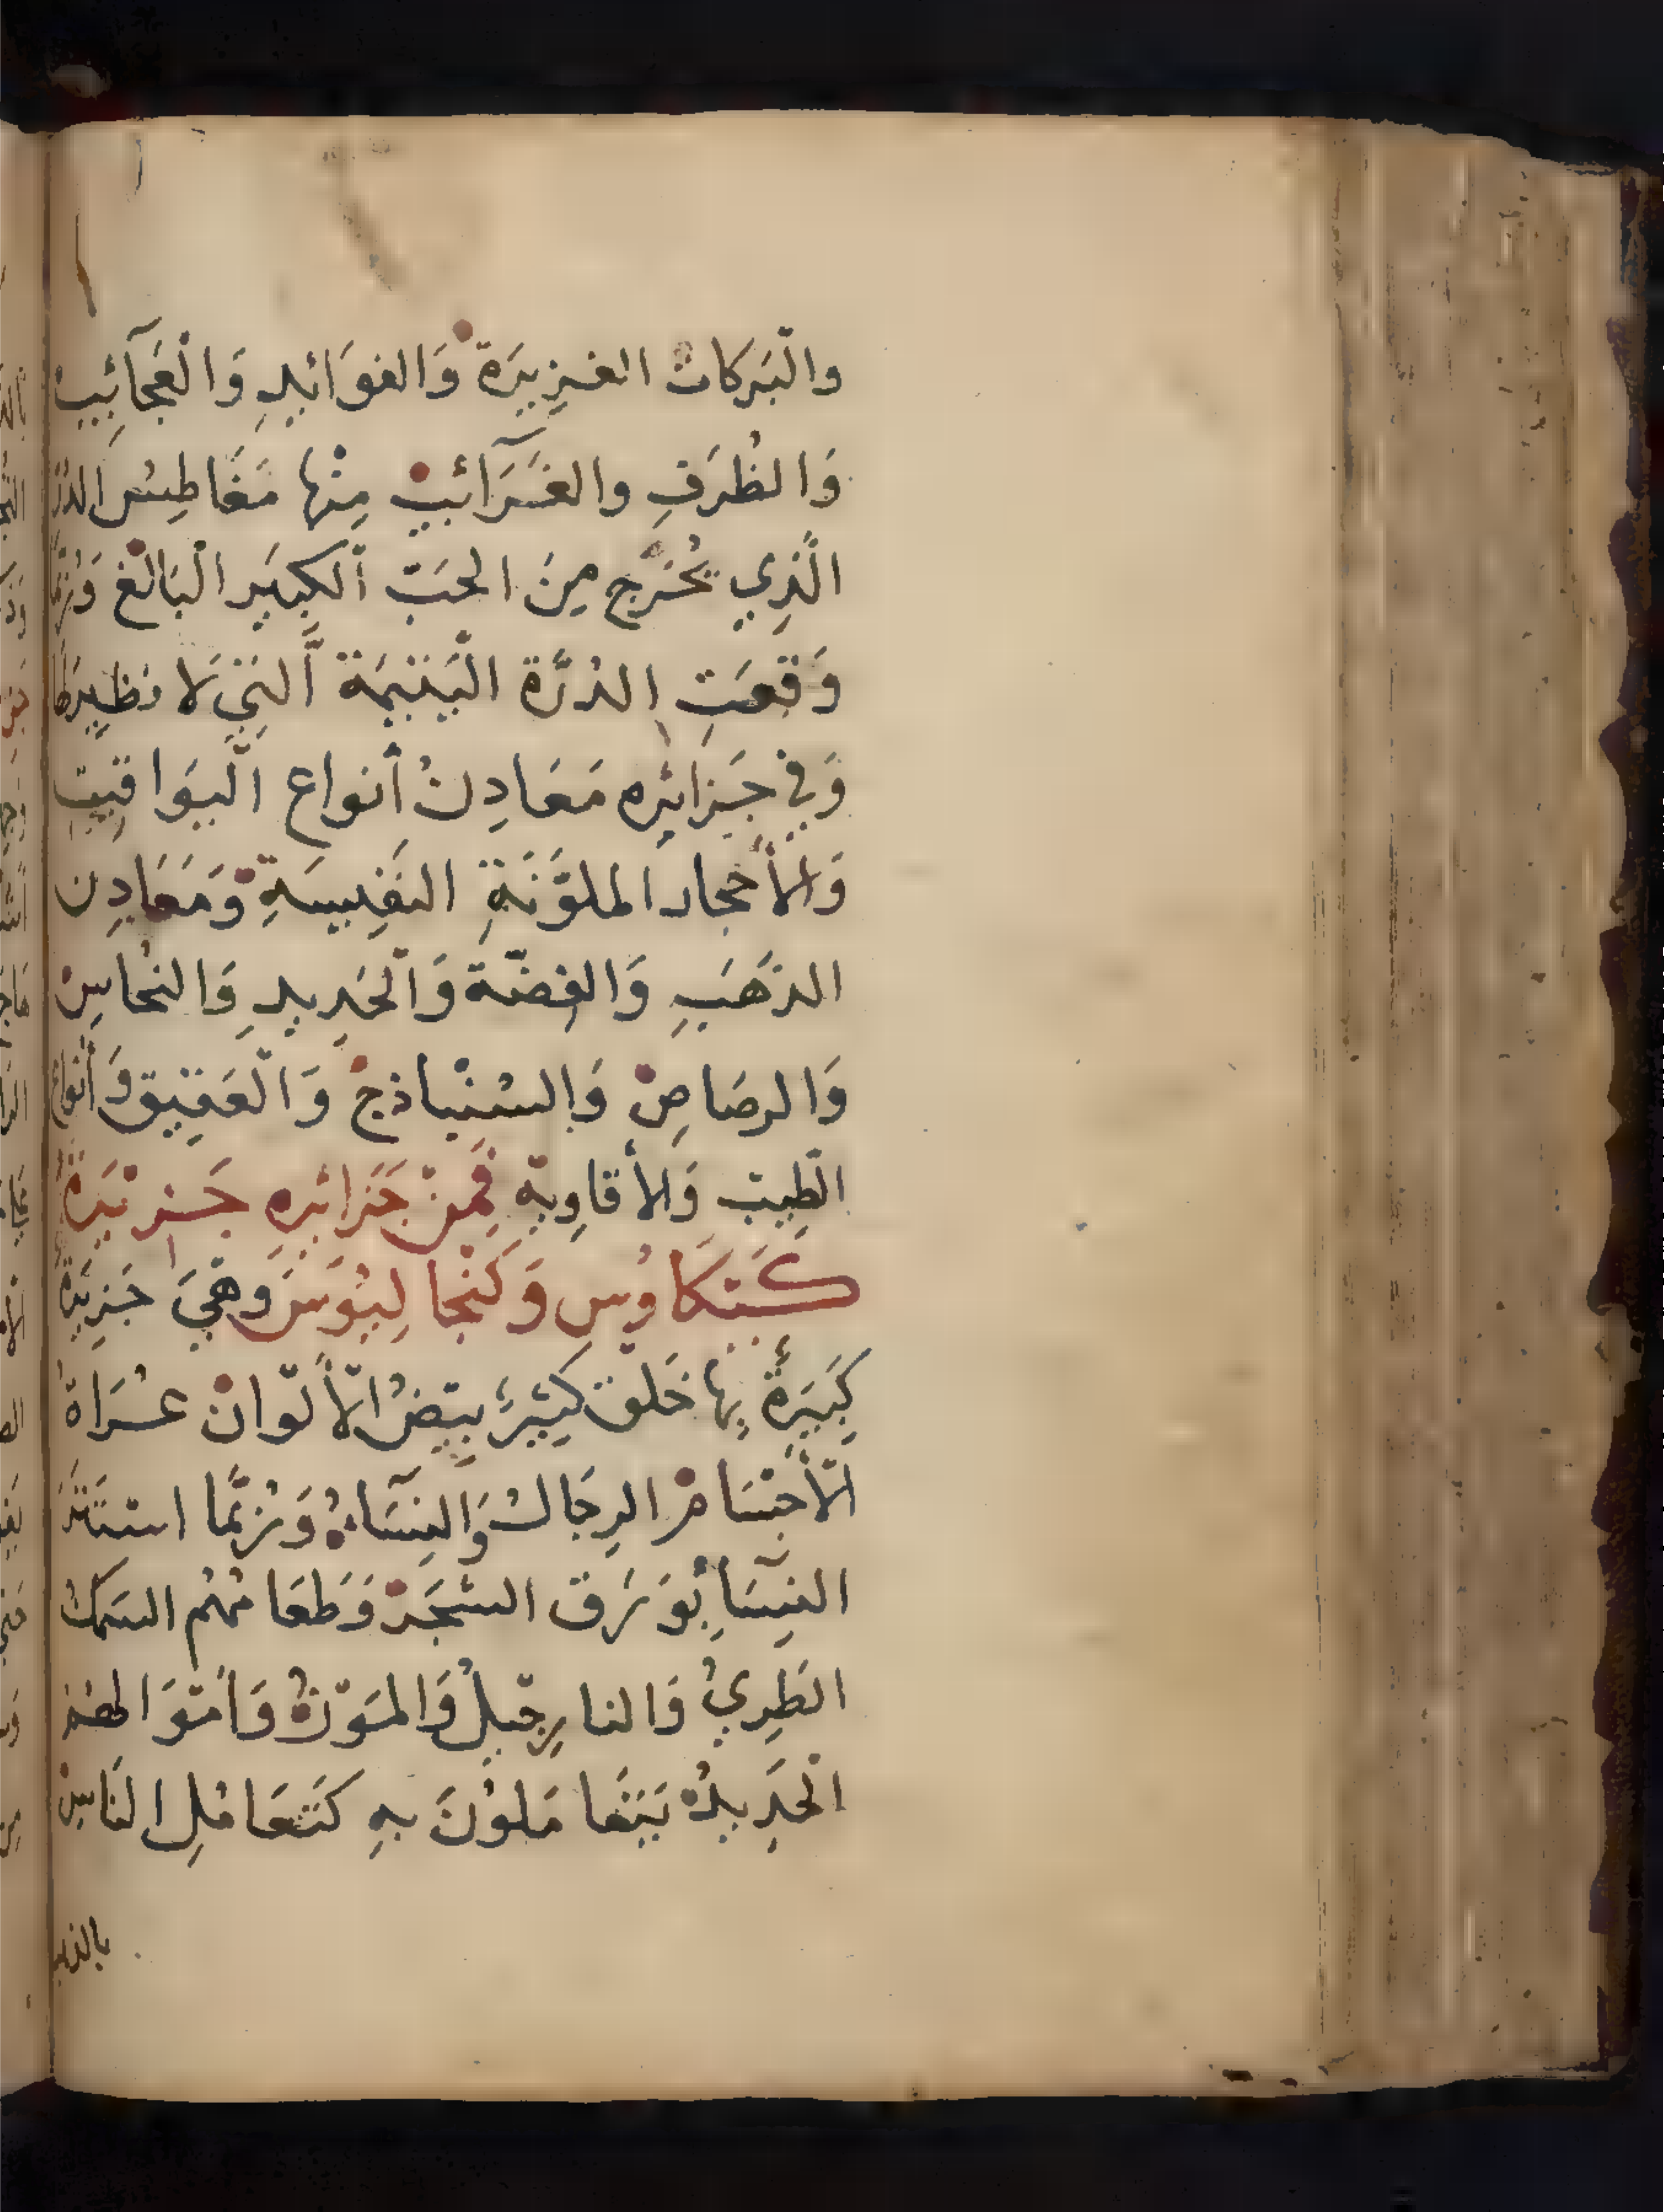 والْبَركات الغزِيرَة وَالفوَائِدِ وَالْعَجَآئِبِ
وَالطُرَفِ والغَرَآئبِ مِنْها مَغَاطِيسُ الدُرّ
الَّذِي يُخرَج مِنَ الحَبّ الْكبِيَر الْبَالغ وَرُبَّما
وَقعَتِ الدُرَّة الْيَتيمَة الَّتي لَا نظِيرَ لهَا
وَفي جَزائِره مَعَادِنُ أنواع الْيَوَاقيتِ
وَالأحجار الملوَّنَةِ النَفِيسَةِ وَمَعَادِن
الذَهَبِ وَالفِضّة وَالْحَدِيدِ وَالنُحاسِ
وَالرصَاصِ وَالسُنْباذجْ وَالْعَقِيق وَأنواع
الطِيب وَلأفاوِيةِ فَمِنْ جَزائرِهِ جَزِيْرَة
كَنكَاوُسِ وَكَنْجَا لِيُوسَ وَهيَ جَزِيَرة
كَبِيَرَةٌ بِها خَلق كثِيْرٌ بيْضُ الْألْوانْ عُرَاةُ
الْأَجْسَامْ الرِجَالُ وَالنِسَآءُ وَرُبَّما استَتَرَ
النِسَآ بِوَرَق الشَجَرْ وَطعَامُهُم السَمَكُ
الطَرِيُ وَالنارِجْيلُ وَالمَوْزُ وَأمْوَالهُم
الْحَدِيدُ يَتَعَامَلُوْنَ بهِ كَتَعَامُلِ النَاسِ
بالذهب